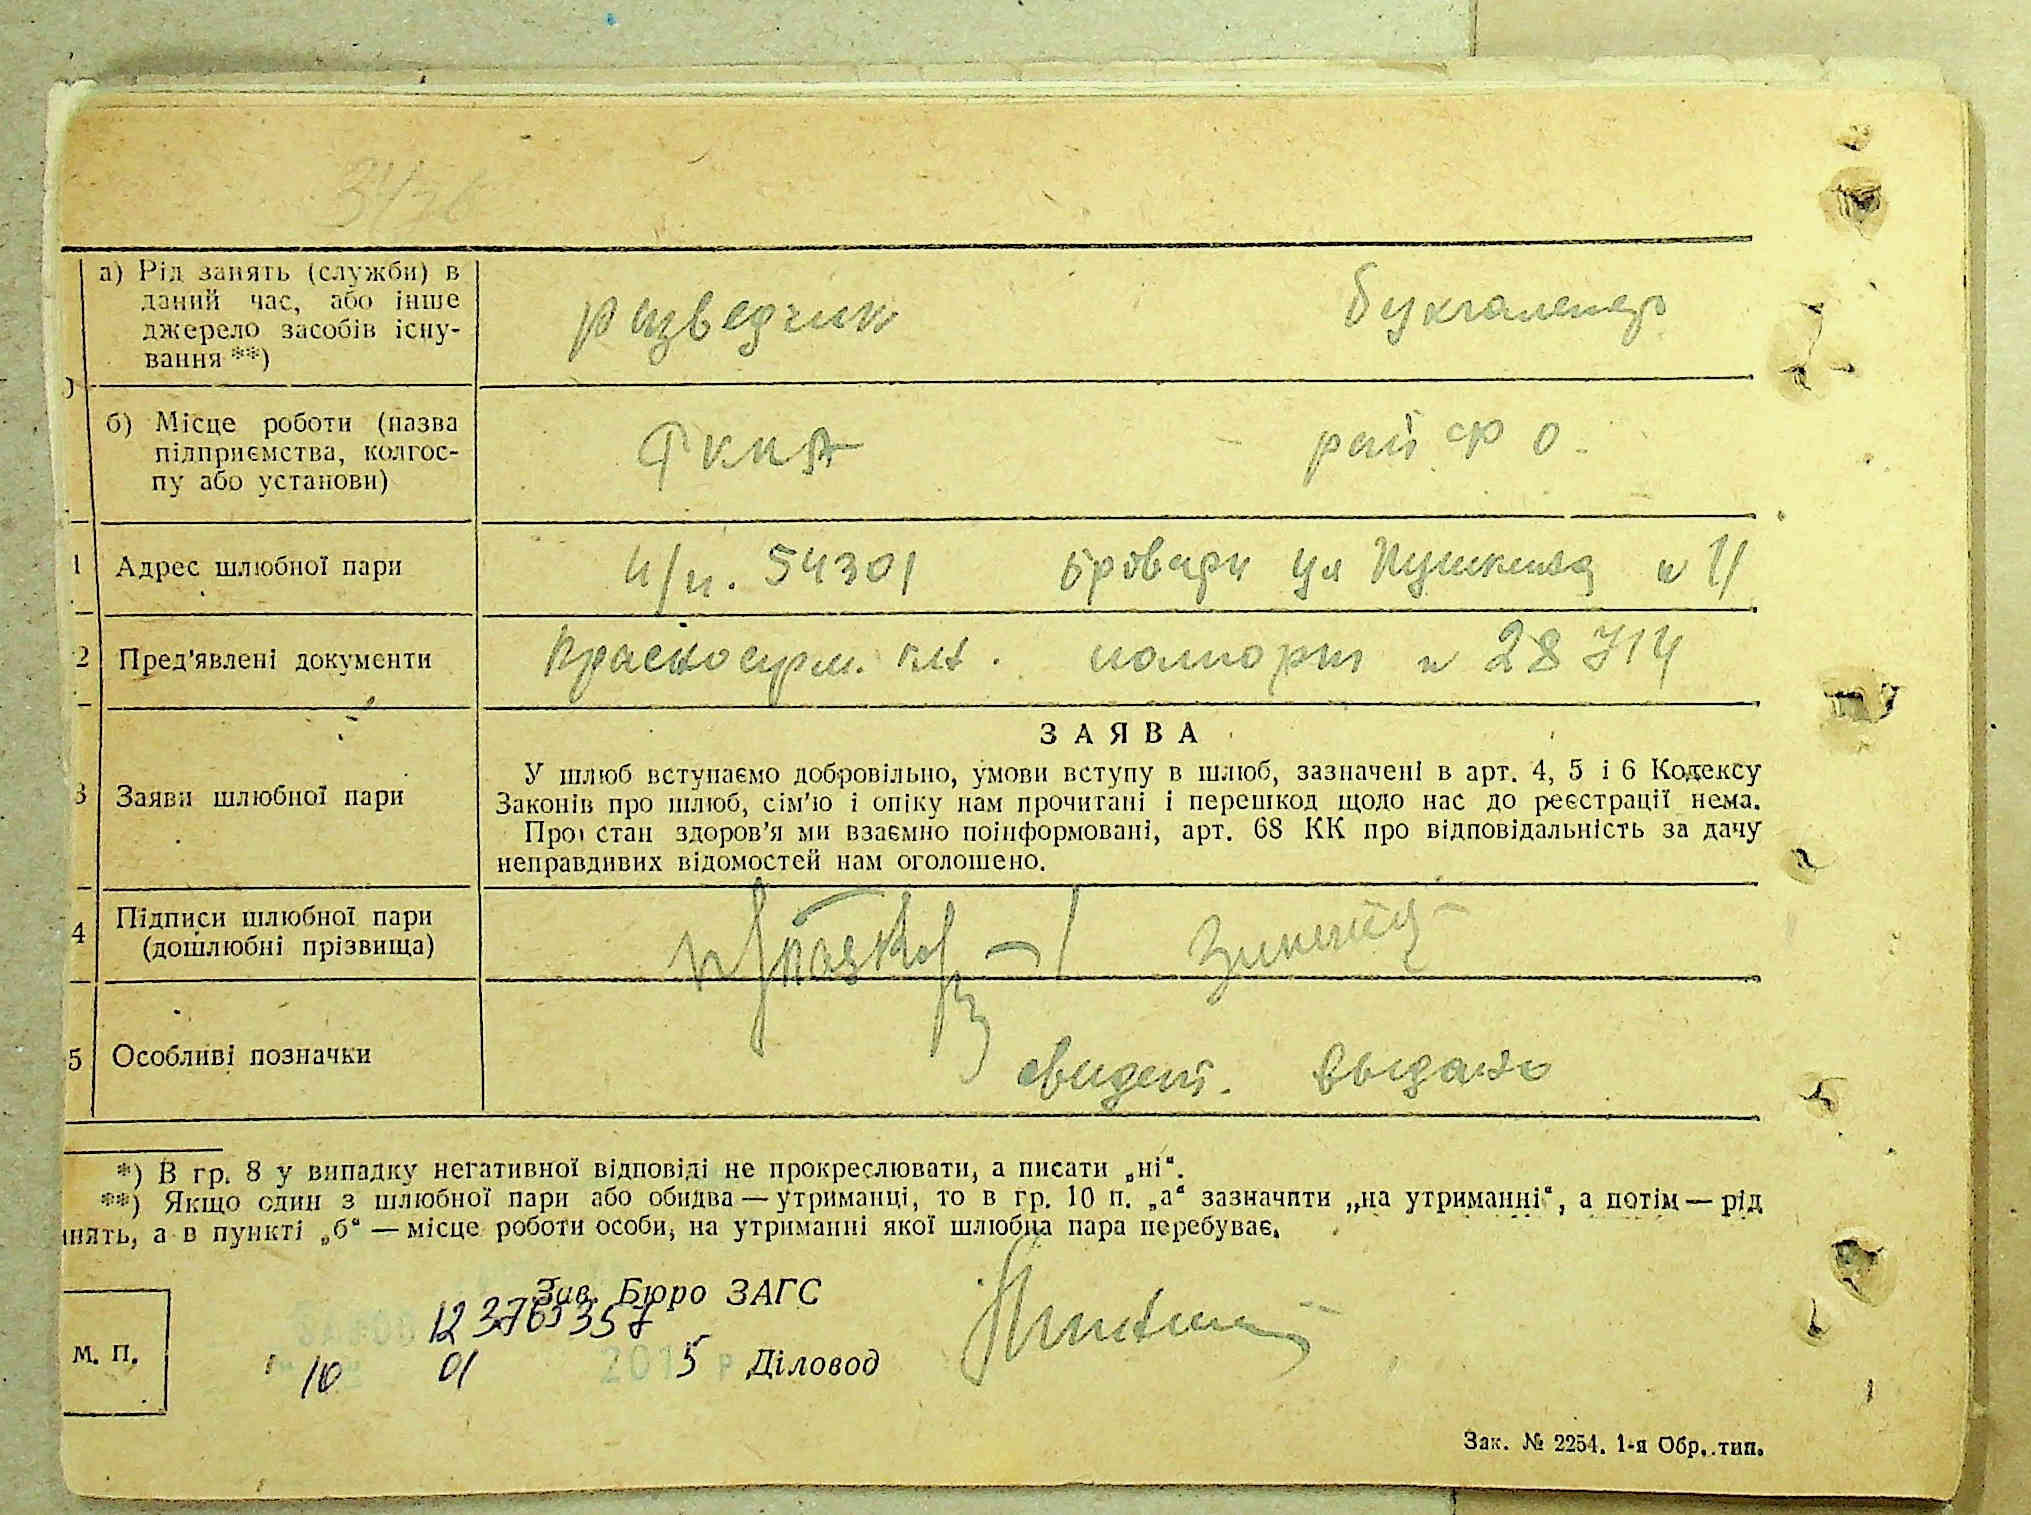 а) Рід занять (служби) в
даний час, або інше
джерело засобів існу-
вання **)
разведчик
бухгалтер
б) Місце роботи (назва
підприємства, колгос-
пу або установи)
РККА
рай фо.
1 Адрес шлюбної пари
п/п. 54301 Бровари ул Пушкина № 11
2 Пред'явлені документи
Красноарм. кн. паспорт № 28714
ЗАЯВА
3 Заяви шлюбної пари
У шлюб вступаємо добровільно, умови вступу в шлюб, зазначені в арт. 4, 5 і 6 Кодексу
Законів про шлюб, сім'ю і опіку нам прочитані і перешкод щодо нас до реєстрації нема.
Про стан здоров'я ми взаємно поінформовані, арт. 68 КК про відповідальність за дачу
неправдивих відомостей нам оголошено.
4 Підписи шлюбної пари
(дошлюбні прізвища)
5 Особливі позначки
свидет. выдано
*) В гр. 8 у випадку негативної відповіді не прокреслювати, а писати „ні“.
**) Якщо один з шлюбної пари або обидва — утриманці, то в гр. 10 п. „а“ зазначити „на утриманні“, а потім — рід
нять, а в пункті „б“ — місце роботи особи, на утриманні якої шлюбна пара перебуває.
Зав. Бюро ЗАГС
12 3765357
м. п.
10 01 2015 р
Діловод
Зак. № 2254. 1-я Обр. тип.